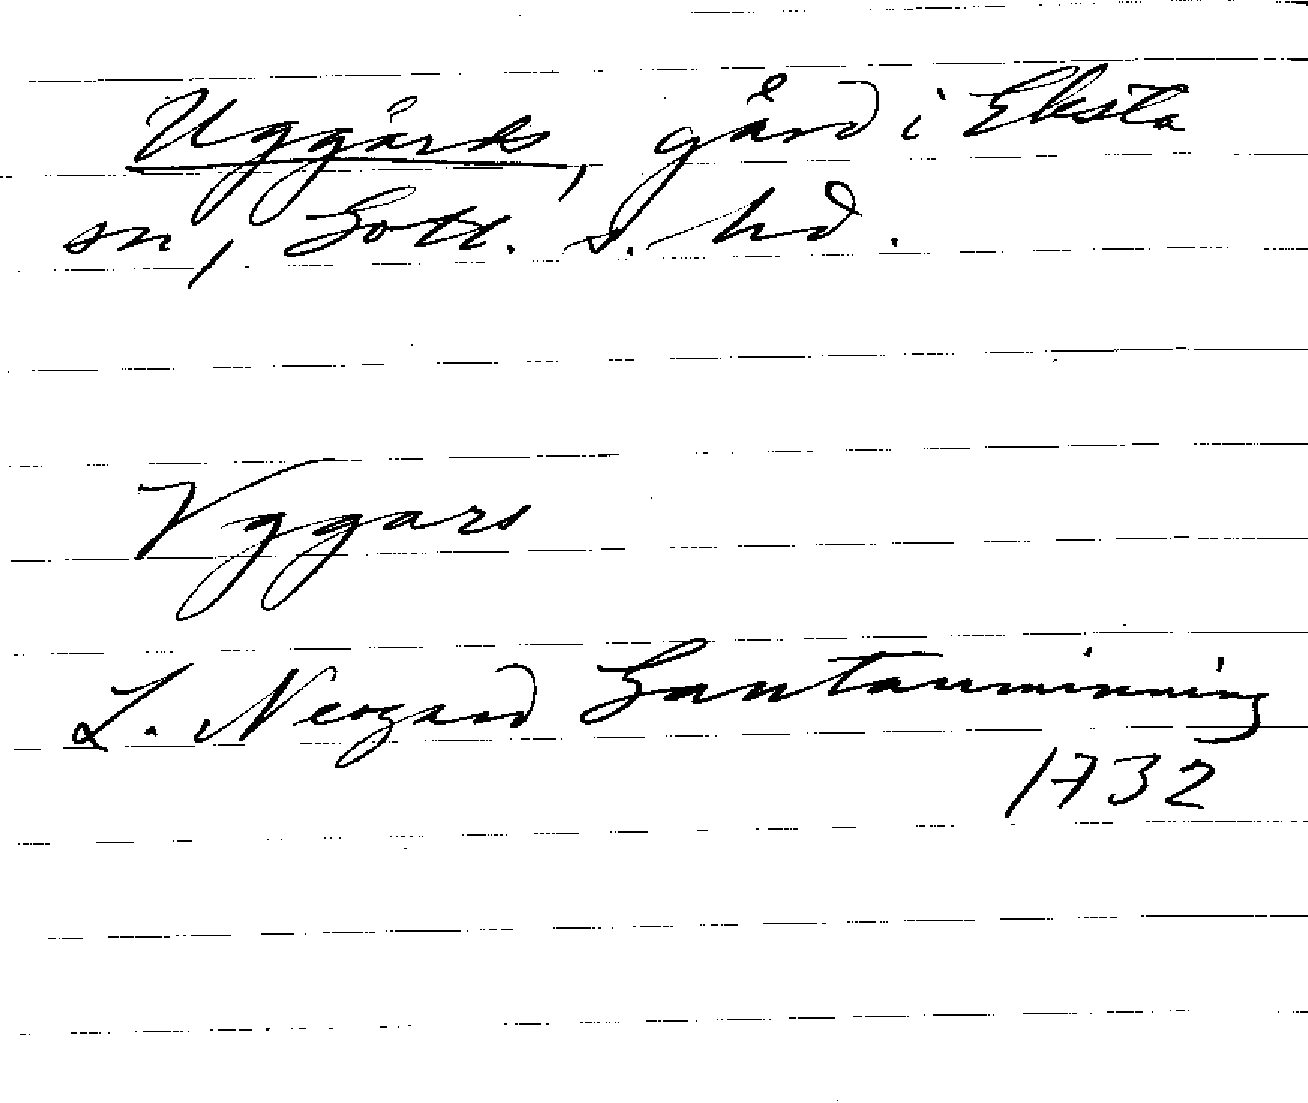 Uggårds, gård i Eksta
sn, Gotl. s. hd.
Vggars
L. Neogard Gautauminning
1732